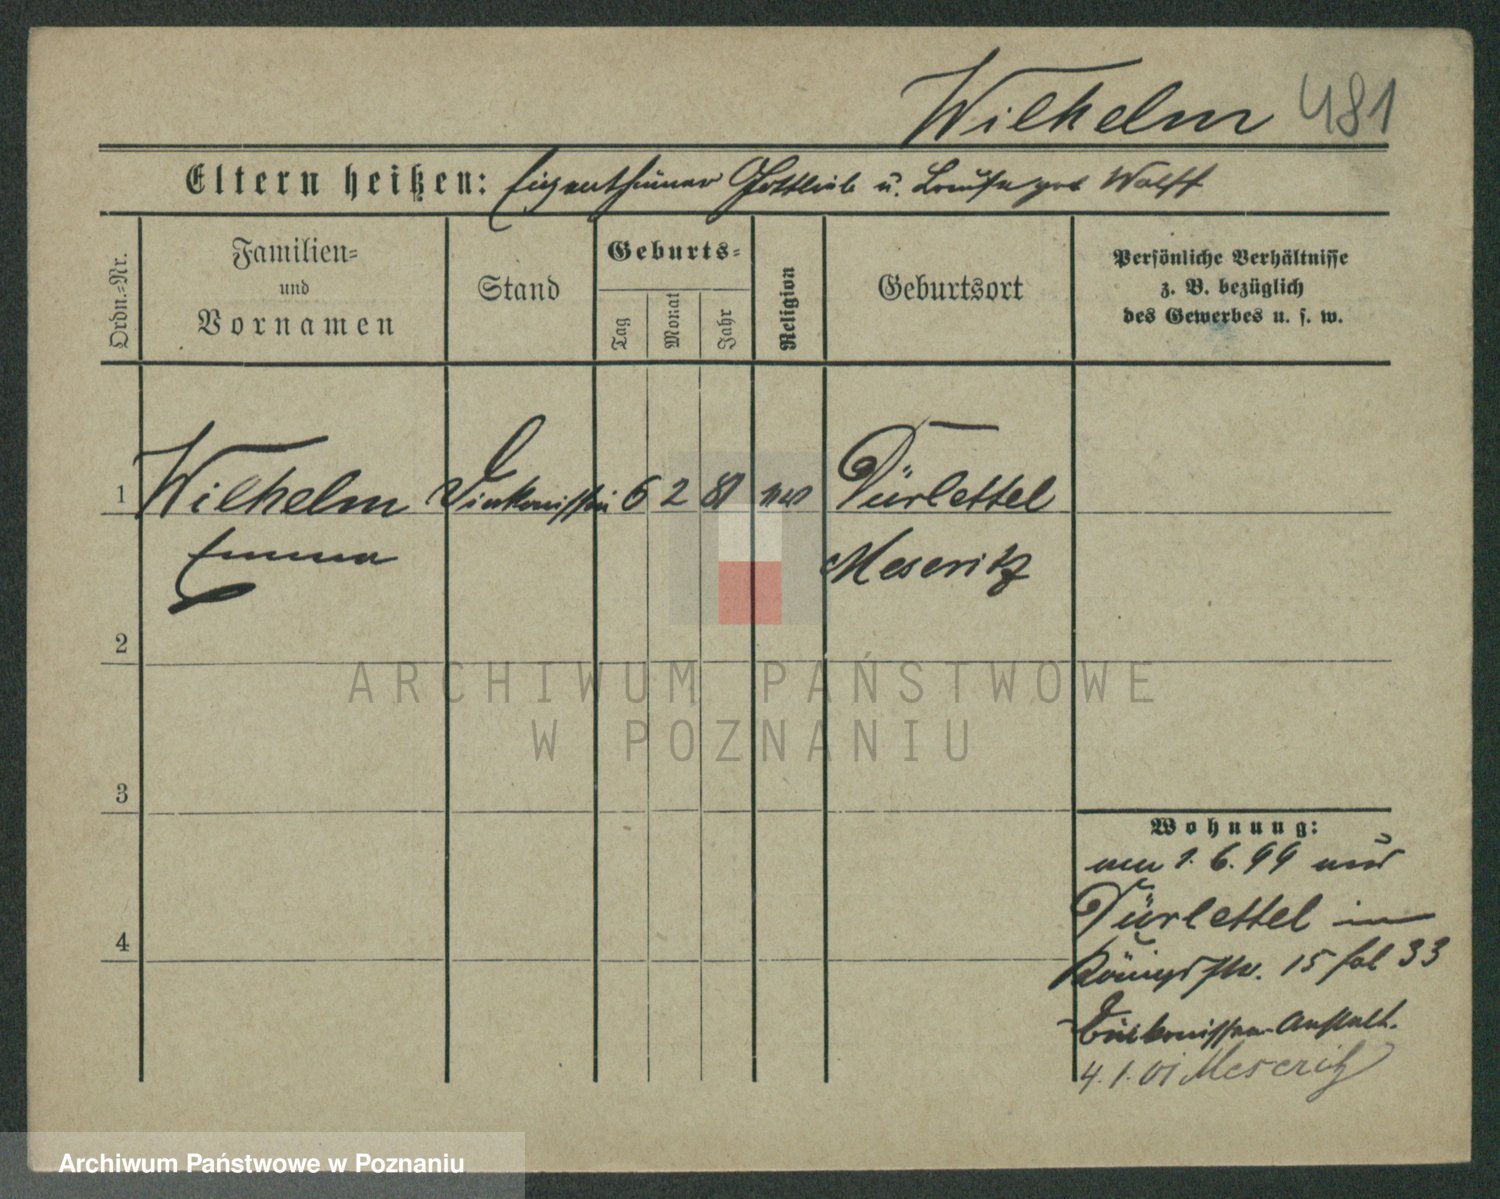 Wilhelm 481
Eltern heißen: Eigenthümer Gottlieb u. Louise geb Wolff
Ordn.-Nr.
Familien-
und
Vornamen
Stand
Geburts-
Tag
Monat
Jahr
Religion
Geburtsort
Persönliche Verhältnisse
z. B. bezüglich
des Gewerbes u. s. w.
1 Wilhelm Diakonissin 6 2 81 ev Dürlettel
Emma Meseritz
2
ARCHIWUM PAŃSTWOWE
W POZNANIU
3
Wohnung:
am 1. 6. 99 aus
Dürlettel in
4
Königstr. 15 fol 33
Diakonissen-Anstalt.
4. 1. 01 Meseritz
Archiwum Państwowe w Poznaniu